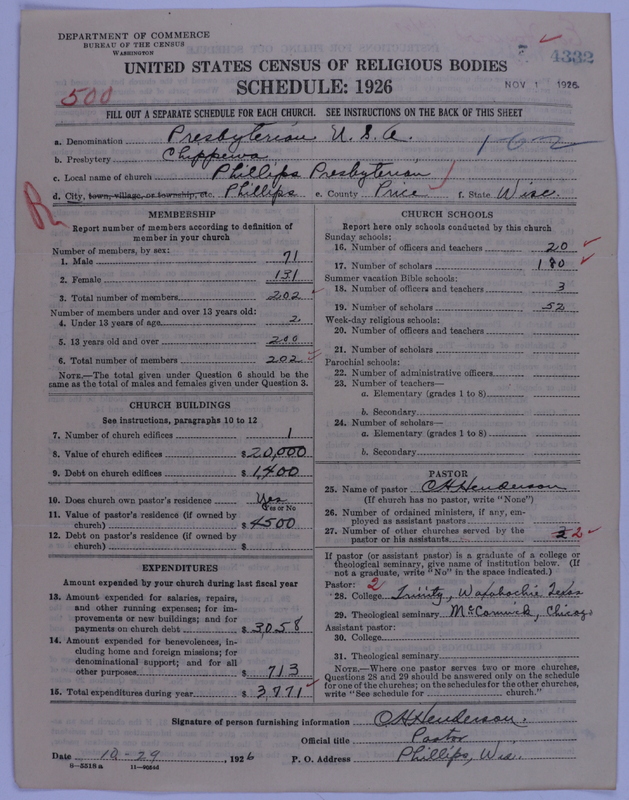 DEPARTMENT OF COMMERCE
BUREAU OF THE CENSUS
WASHINGTON
4332
UNITED STATES CENSUS OF RELIGIOUS BODIES
SCHEDULE: 1926
NOV 1 1926
500
FILL OUT A SEPARATE SCHEDULE FOR EACH CHURCH. SEE INSTRUCTIONS ON THE BACK OF THIS SHEET
a. Denomination Presbyterian U.S.A. 162
b. Presbytery Chippewa
c. Local name of church Phillips Presbyterian
d. City, town, village, or township, etc. Phillips e. County Price f. State Wisc.
R
MEMBERSHIP
Report number of members according to definition of member in your church
Number of members, by sex:
1. Male 71
2. Female 131
3. Total number of members 202
Number of members under and over 13 years old:
4. Under 13 years of age 2
5. 13 years old and over 200
6. Total number of members 202
NOTE.—The total given under Question 6 should be
same as the total of males and females given under Question 3.
CHURCH BUILDINGS
See instructions, paragraphs 10 to 12
7. Number of church edifices 1
8. Value of church edifices $20,000
9. Debt on church edifices $1,400
10. Does church own pastor's residence Yes
Yes or No
11. Value of pastor's residence (if owned by
church) $4500
12. Debt on pastor's residence (if owned by
church) $
EXPENDITURES
Amount expended by your church during last fiscal year
13. Amount expended for salaries, repairs,
and other running expenses; for im-
provements or new buildings; and for
payments on church debt $3,058
14. Amount expended for benevolences, in-
cluding home and foreign missions; for
denominational support; and for all
other purposes $713
15. Total expenditures during year $3,771
CHURCH SCHOOLS
Report here only schools conducted by this church
Sunday schools:
16. Number of officers and teachers 20
17. Number of scholars 180
Summer vacation Bible schools:
18. Number of officers and teachers 3
19. Number of scholars 52
Week-day religious schools:
20. Number of officers and teachers
21. Number of scholars
Parochial schools:
22. Number of administrative officers
23. Number of teachers—
a. Elementary (grades 1 to 8)
b. Secondary
24. Number of scholars—
a. Elementary (grades 1 to 8)
b. Secondary
PASTOR
25. Name of pastor OH Henderson
(If church has no pastor, write "None")
26. Number of ordained ministers, if any, em-
ployed as assistant pastors
27. Number of other churches served by the
pastor or his assistants 2
If pastor (or assistant pastor) is a graduate of a college or
theological seminary, give name of institution below. (If
not a graduate, write "No" in the space indicated.)
Pastor: 2
28. College Trinity, Waxahachie Texas
29. Theological seminary McCormick, Chicago
Assistant pastor:
30. College
31. Theological seminary
NOTE.—Where one pastor serves two or more churches,
Questions 28 and 29 should be answered only on the schedule
for one of the churches; on the schedules for the other churches,
write "See schedule for church."
Signature of person furnishing information OH Henderson.
Official title Pastor
Date 10-29, 1926 P. O. Address Phillips, Wis.
8—5518a 11—9024d